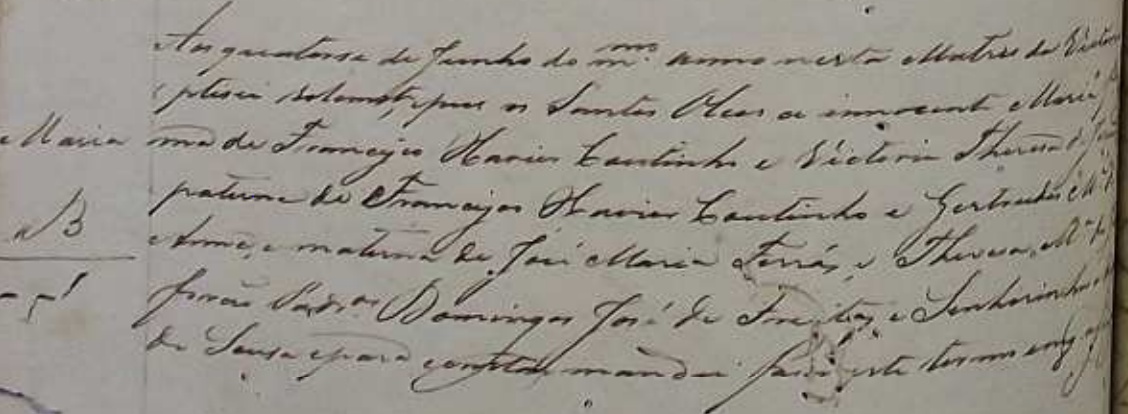 Aos quatorse de Junho do m.mo anno nesta Matris da Victoria
ptisei solemnte, e pus os Santos Oleos a innocente Maria
Maria
ma de Francisco Xavier Coutinho e Victoria Theresa de
paterna de Francisco Xavier Coutinho e Gertrudes M.a
B
Anna, e materna de José Maria Ferrás, e Theresa M.a
forão Padr.os Domingos José de Freitas, e Senhorinha
de Sousa e para constar mandei faser este termo em q